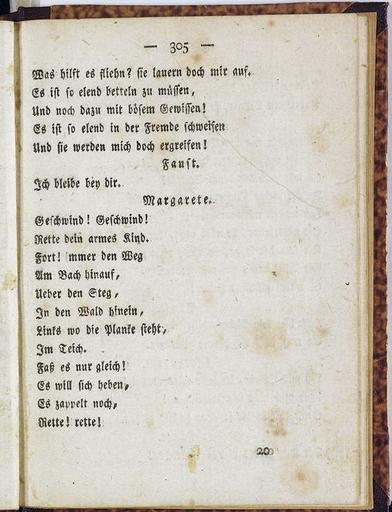 — 305 —
Was hilft es fliehn? sie lauern doch mir auf.
Es ist so elend betteln zu müssen,
Und noch dazu mit bösem Gewissen!
Es ist so elend in der Fremde schweifen
Und sie werden mich doch ergreifen!
Faust.
Ich bleibe bey dir.
Margarete.
Geschwind! Geschwind!
Rette dein armes Kind.
Fort! immer den Weg
Am Bach hinauf,
Ueber den Steg,
In den Wald hinein,
Links wo die Planke steht,
Im Teich.
Faß es nur gleich!
Es will sich heben,
Es zappelt noch,
Rette! rette!
20